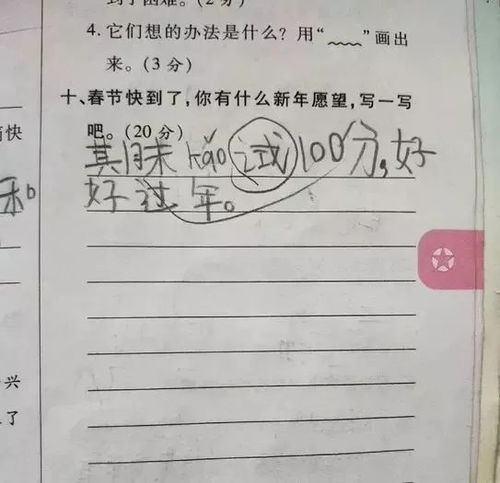 到了困难。(2 分)
4. 它们想的办法是什么？用“﹏﹏”画出
来。(3 分)
十、春节快到了，你有什么新年愿望，写一写
吧。(20 分)
其月末 kǎo 试 100分，好
好过年。
快
兴
了